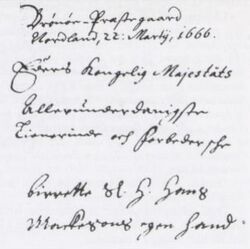 Brönöe-Præstegaard
Nordland, 22: Martij, 1666.
Eders Kongelig Majestäts
Alleründerdanigste
Tienerinde och Forbedersche
birrette Sl. H. Hans
Mackesons egen Hand.